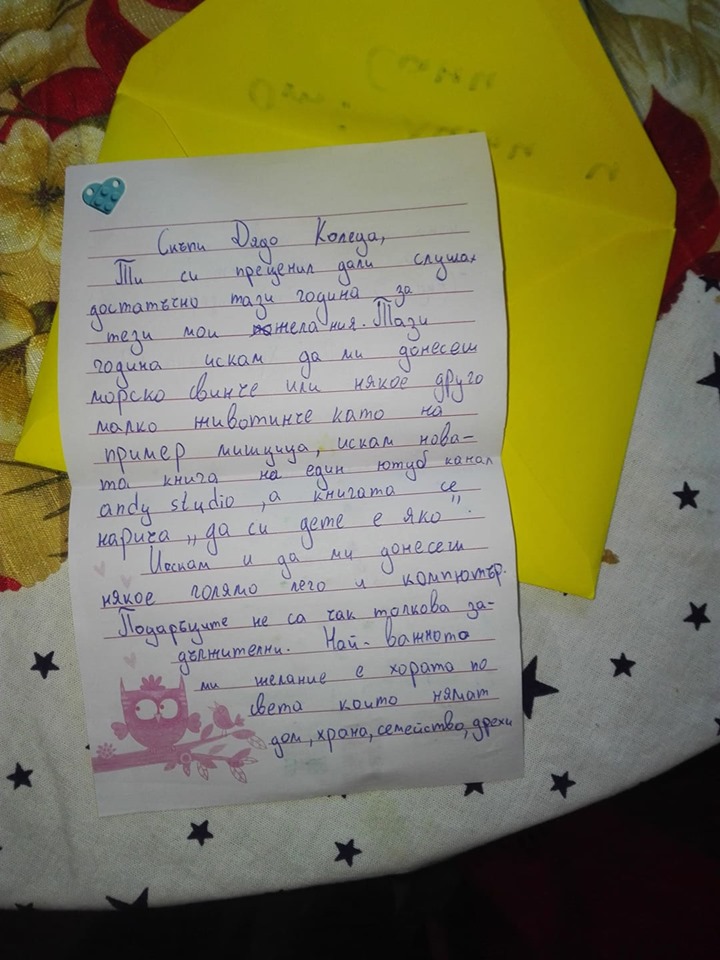 Скъпи Дядо Коледа,
Ти си преценил дали слушах
достатъчно тази година за
тези мои желания. Тази
година искам да ми донесеш
морско свинче или някое друго
малко животинче като на
пример мишцица, искам нова-
та книга на един ютуб канал
andy studio, а книгата се
нарича „да си дете е яко".
Искам и да ми донесеш
някое голямо лего и компютър.
Подаръците не са чак толкова за-
дължителни. Най-важното
ми желание е хората по
света които нямат
дом, храна, семейство, дрехи